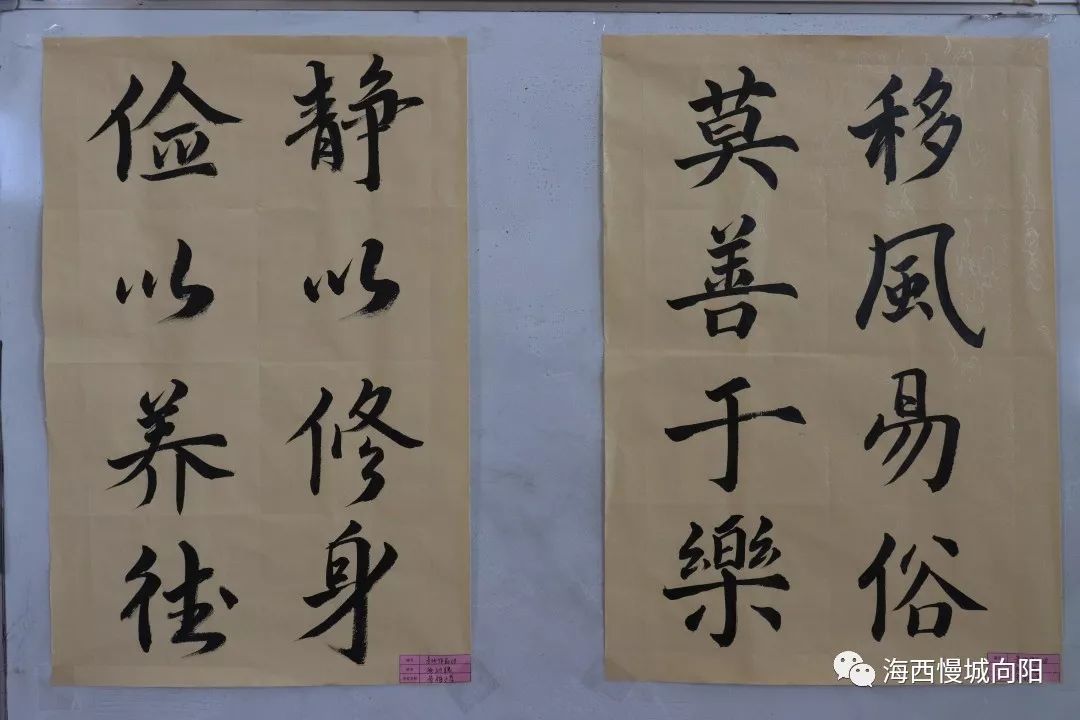 移風易俗
莫善于樂
静以修身
俭以养德
海西慢城向阳